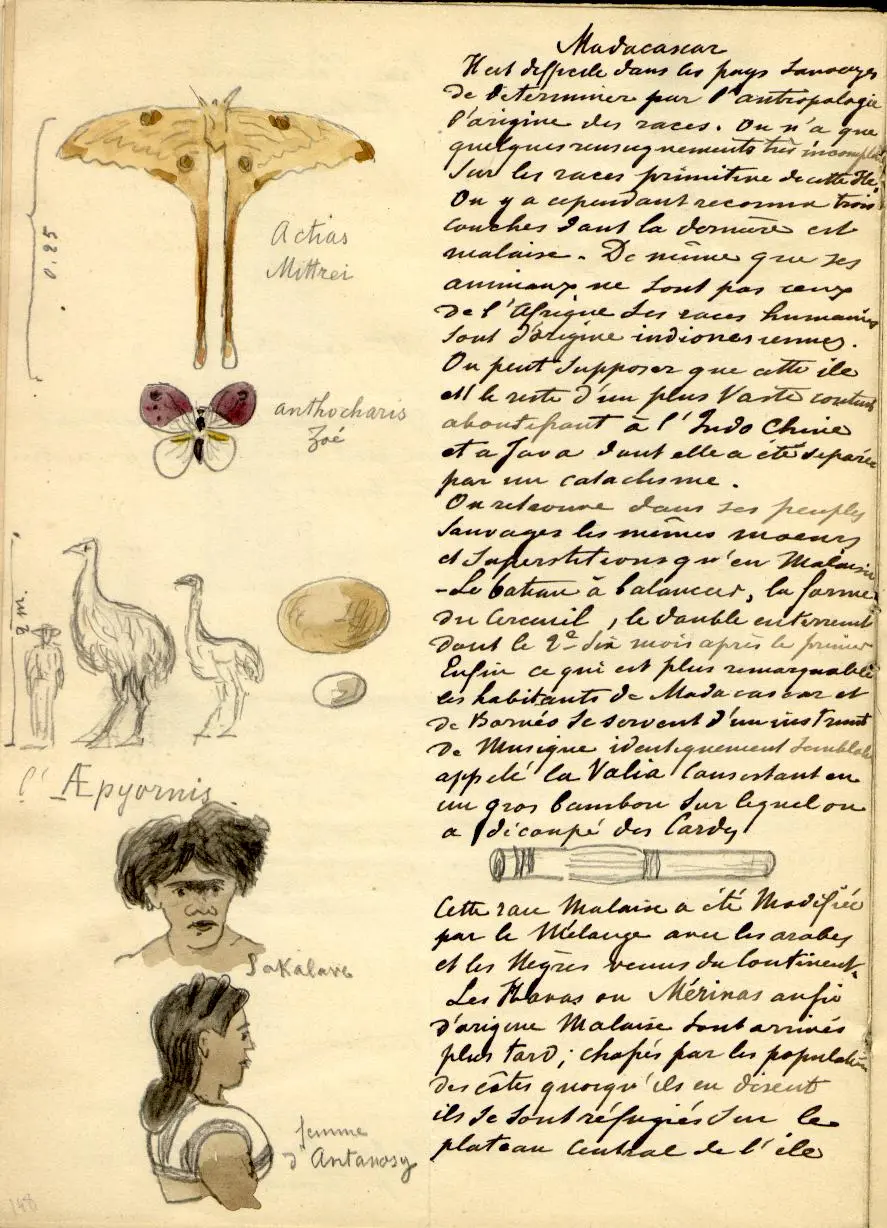 Madacascar
Il est difficile dans les pays sauvages
de déterminer par l'antropologie
l'origine des races. On n'a que
quelques renseignements très incomplets
sur les races primitive de cette Ile.
On y a cependant reconnu trois
couches dont la dernière est
malaise. De même que ses
animaux ne sont pas ceux
de l'Afrique ses races humaines
sont d'origine indionesiennes.
On peut supposer que cette ile
est le reste d'un plus vaste continent
aboutissant à l'Indo Chine
et a Java dont elle a été séparée
par un cataclisme.
On retrouve dans ses peuples
sauvages les mêmes moeurs
et superstitions qu'en Malaisie
- Le bateau à balancier, la forme
du cercueil, le double enterrement
dont le 2e dix mois après le premier
Enfin ce qui est plus remarquable
les habitants de Madacascar et
de Bornéo se servent d'un instrument
de Musique identiquement semblable
appelé la Valia consistant en
un gros bambou sur lequel on
a découpé des cordes
Cette race Malaise a été Modifiée
par le Mélange avec les arabes
et les Nègres venus du Continent.
Les Havas ou Mérinas aussi
d'origine Malaise sont arrivés
plus tard; chassés par les populations
des côtes quoiqu'ils en disent
ils se sont réfugiés sur le
plateau central de l'île
0,25
Actias
Mittrei
anthocharis
Zoé
2 m.
l'Æpyornis
Sakalave
femme
d'Antanosy
148